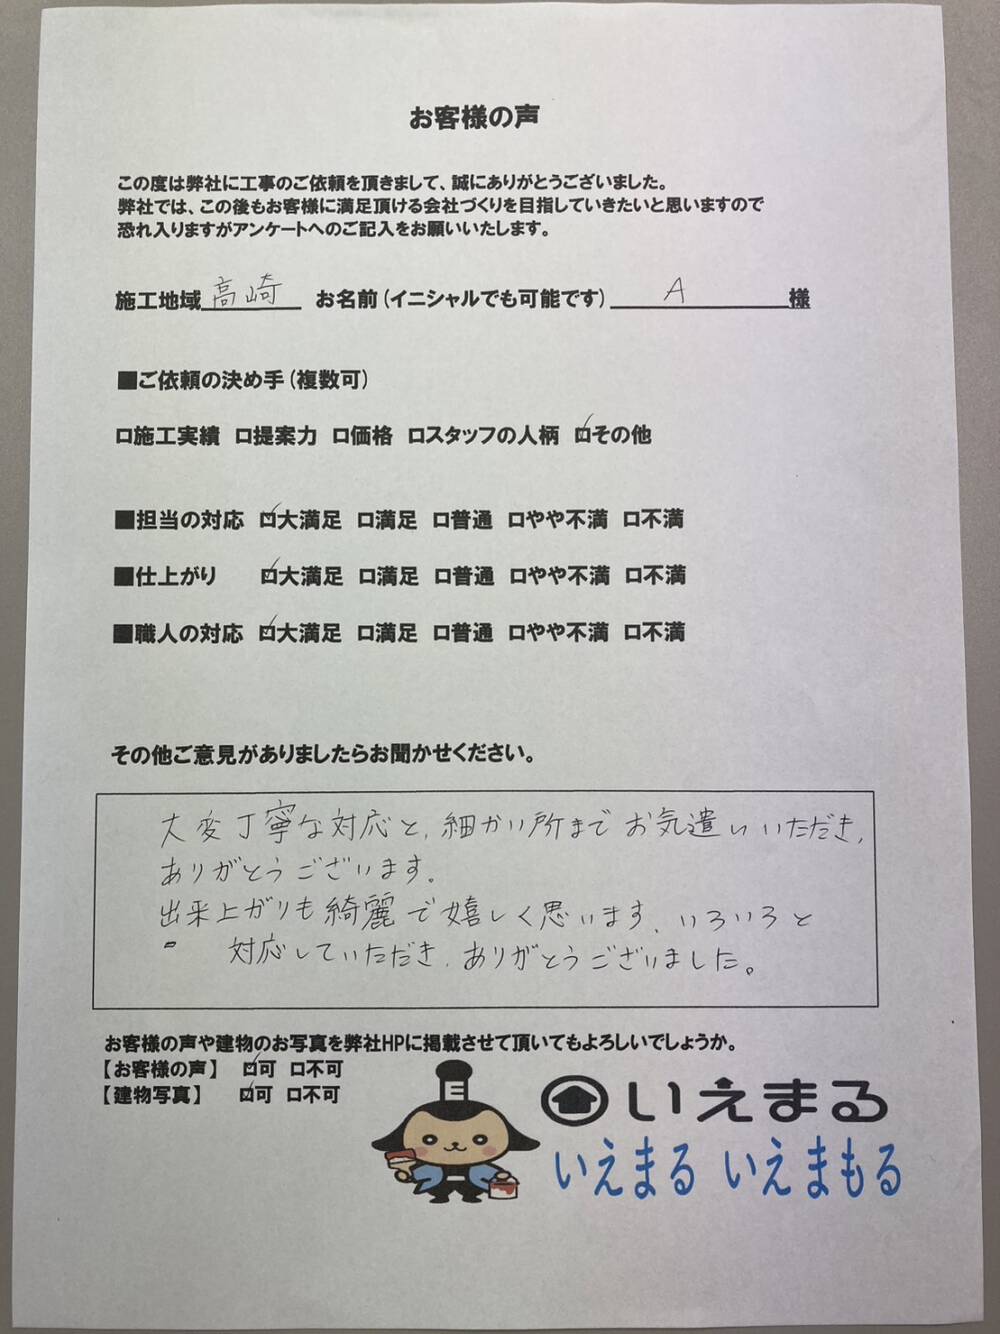 お客様の声
この度は弊社に工事のご依頼を頂きまして、誠にありがとうございました。
弊社では、この後もお客様に満足頂ける会社づくりを目指していきたいと思いますので
恐れ入りますがアンケートへのご記入をお願いいたします。
施工地域 高崎 お名前(イニシャルでも可能です) A 様
■ご依頼の決め手(複数可)
□施工実績 □提案力 □価格 □スタッフの人柄 ☑その他
■担当の対応 ☑大満足 □満足 □普通 □やや不満 □不満
■仕上がり ☑大満足 □満足 □普通 □やや不満 □不満
■職人の対応 ☑大満足 □満足 □普通 □やや不満 □不満
その他ご意見がありましたらお聞かせください。
大変丁寧な対応と、細かい所までお気遣いいただき、
ありがとうございます。
出来上がりも綺麗で嬉しく思います。いろいろと
対応していただき、ありがとうございました。
お客様の声や建物のお写真を弊社HPに掲載させて頂いてもよろしいでしょうか。
【お客様の声】 ☑可 □不可
【建物写真】 ☑可 □不可
E
いえまる
いえまる いえまもる